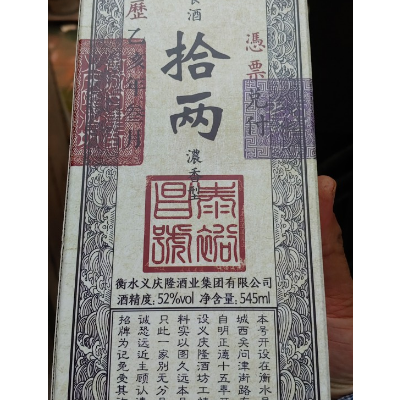 食酒
拾两
憑票兑付
歷乙亥年叁月
濃香型
泰裕昌號
衡水义庆隆酒业集团有限公司
酒精度：52%vol 净含量：545ml
本号开设在衡水
城西关问津街路
自明正德十五年
设义庆隆酒坊工
料实以图久远本
只此一家别无分
诚恐远近主顾认
招牌为记免受其